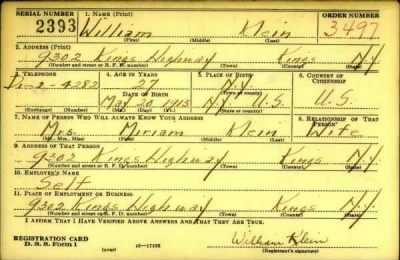 SERIAL NUMBER 1. NAME (Print) ORDER NUMBER
2393 William Klein 3497
(First) (Middle) (Last)
2. ADDRESS (Print)
9302 Kings Highway Kings N.Y.
(Number and street or R. F. D. number) (Town) (County) (State)
3. TELEPHONE 4. AGE IN YEARS 5. PLACE OF BIRTH 6. COUNTRY OF CITIZENSHIP
2-9282 27 N.Y.
DATE OF BIRTH
May 20 1913 N.Y. U.S. U.S.
(Mo.) (Day) (Yr.)
7. NAME OF PERSON WHO WILL ALWAYS KNOW YOUR ADDRESS 8. RELATIONSHIP OF THAT PERSON
Mrs. Miriam Klein Wife
(Mr., Mrs., Miss) (First) (Middle) (Last)
9. ADDRESS OF THAT PERSON
9302 Kings Highway Kings N.Y.
(Number and street or R. F. D. number) (Town) (County) (State)
10. EMPLOYER'S NAME
Self
11. PLACE OF EMPLOYMENT OR BUSINESS
9302 Kings Highway Kings N.Y.
(Number and street or R. F. D. number) (Town) (County) (State)
I AFFIRM THAT I HAVE VERIFIED ABOVE ANSWERS AND THAT THEY ARE TRUE.
REGISTRATION CARD
D. S. S. Form 1 (over) 16—17105 William Klein
(Registrant's signature)